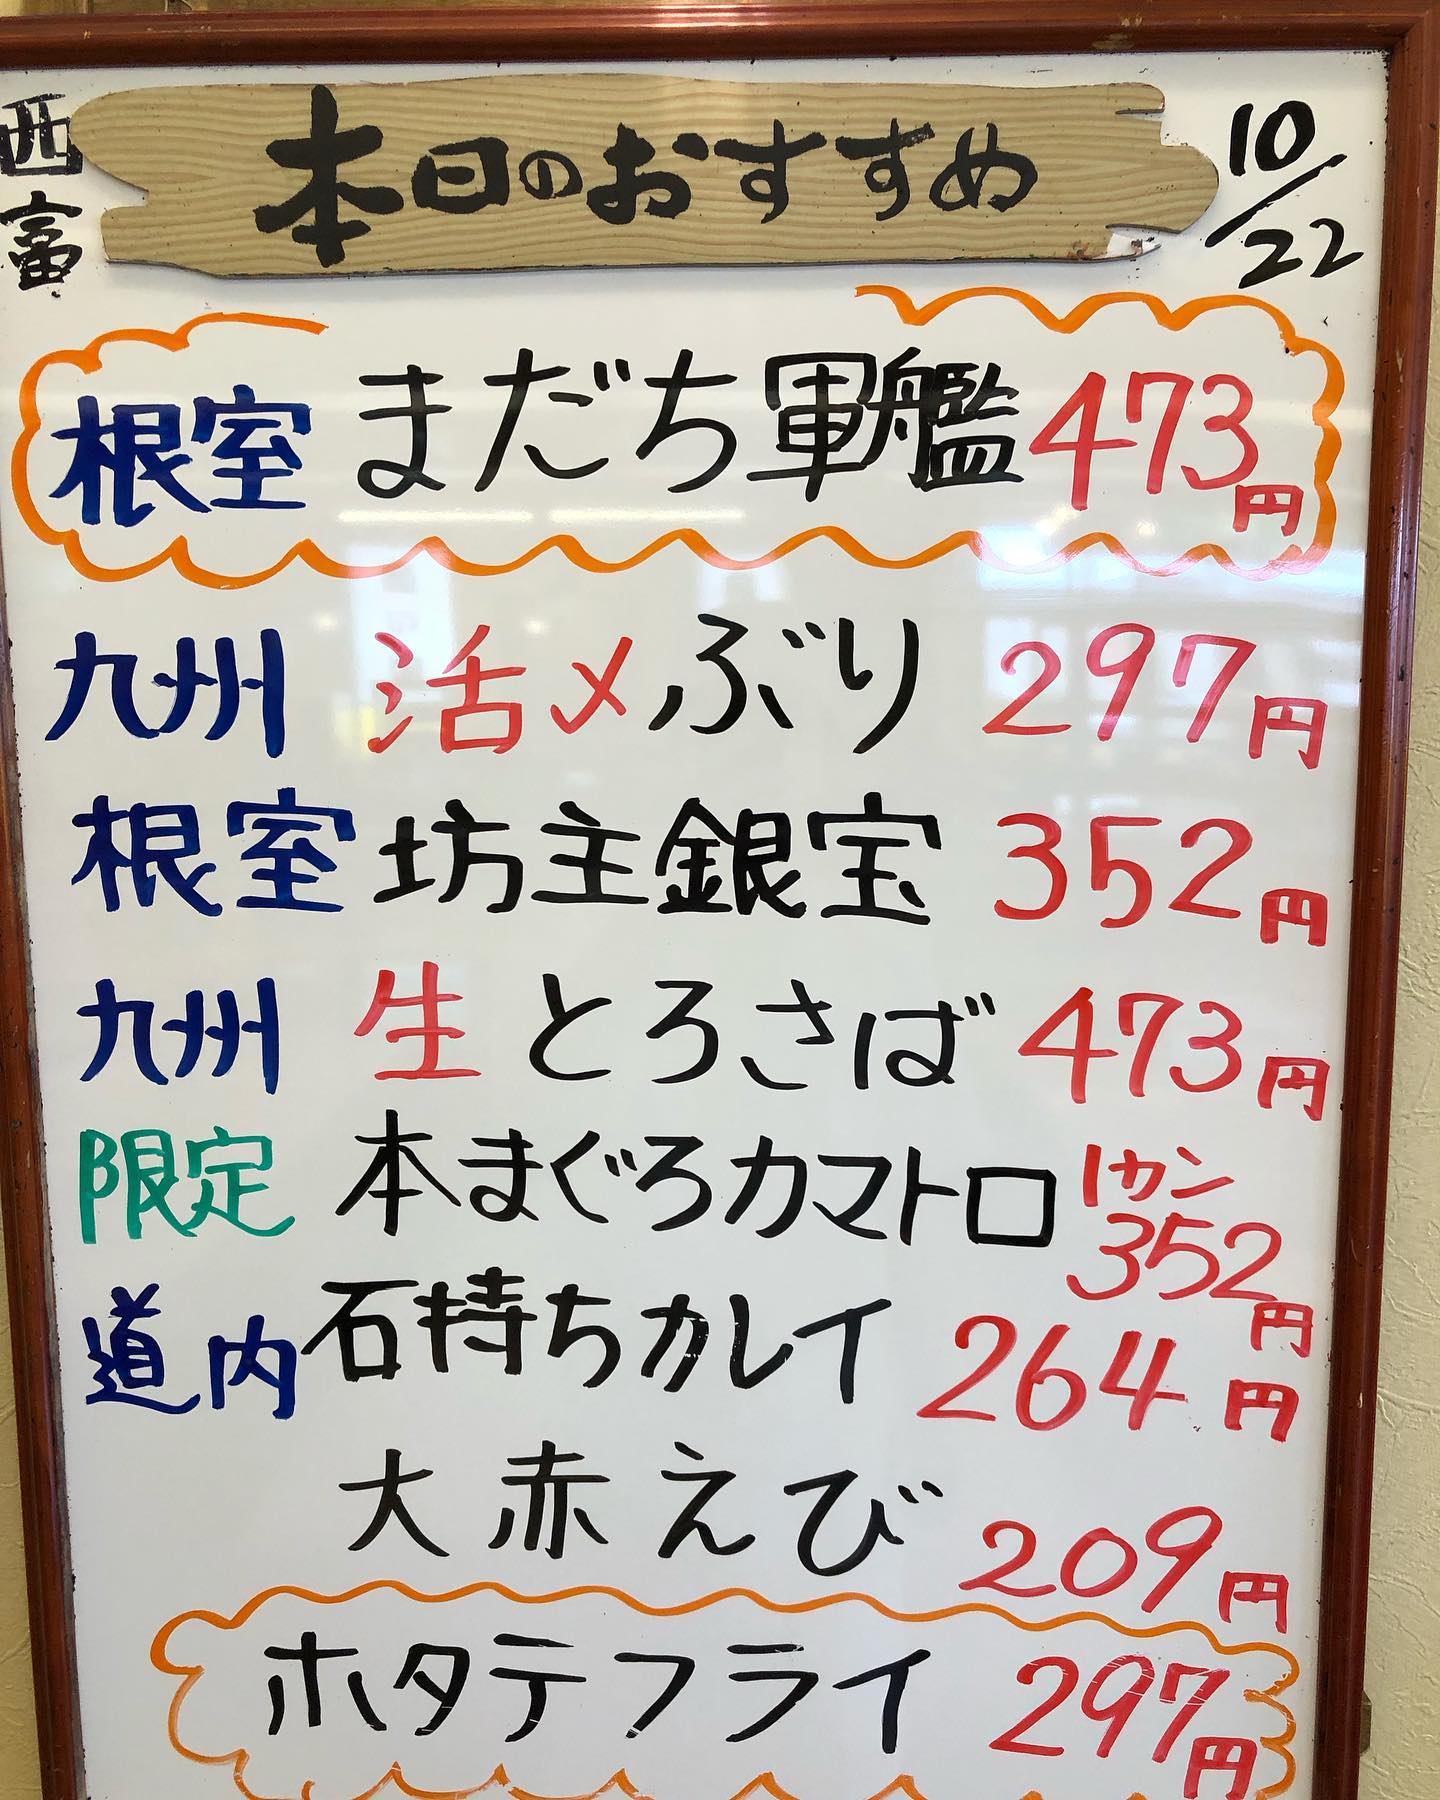 西富
本日のおすすめ
10/22
根室 まだち軍艦 473円
九州 活〆ぶり 297円
根室 坊主銀宝 352円
九州 生とろさば 473円
限定 本まぐろカマトロ 1カン 352円
道内 石持ちカレイ 264円
大赤えび 209円
ホタテフライ 297円